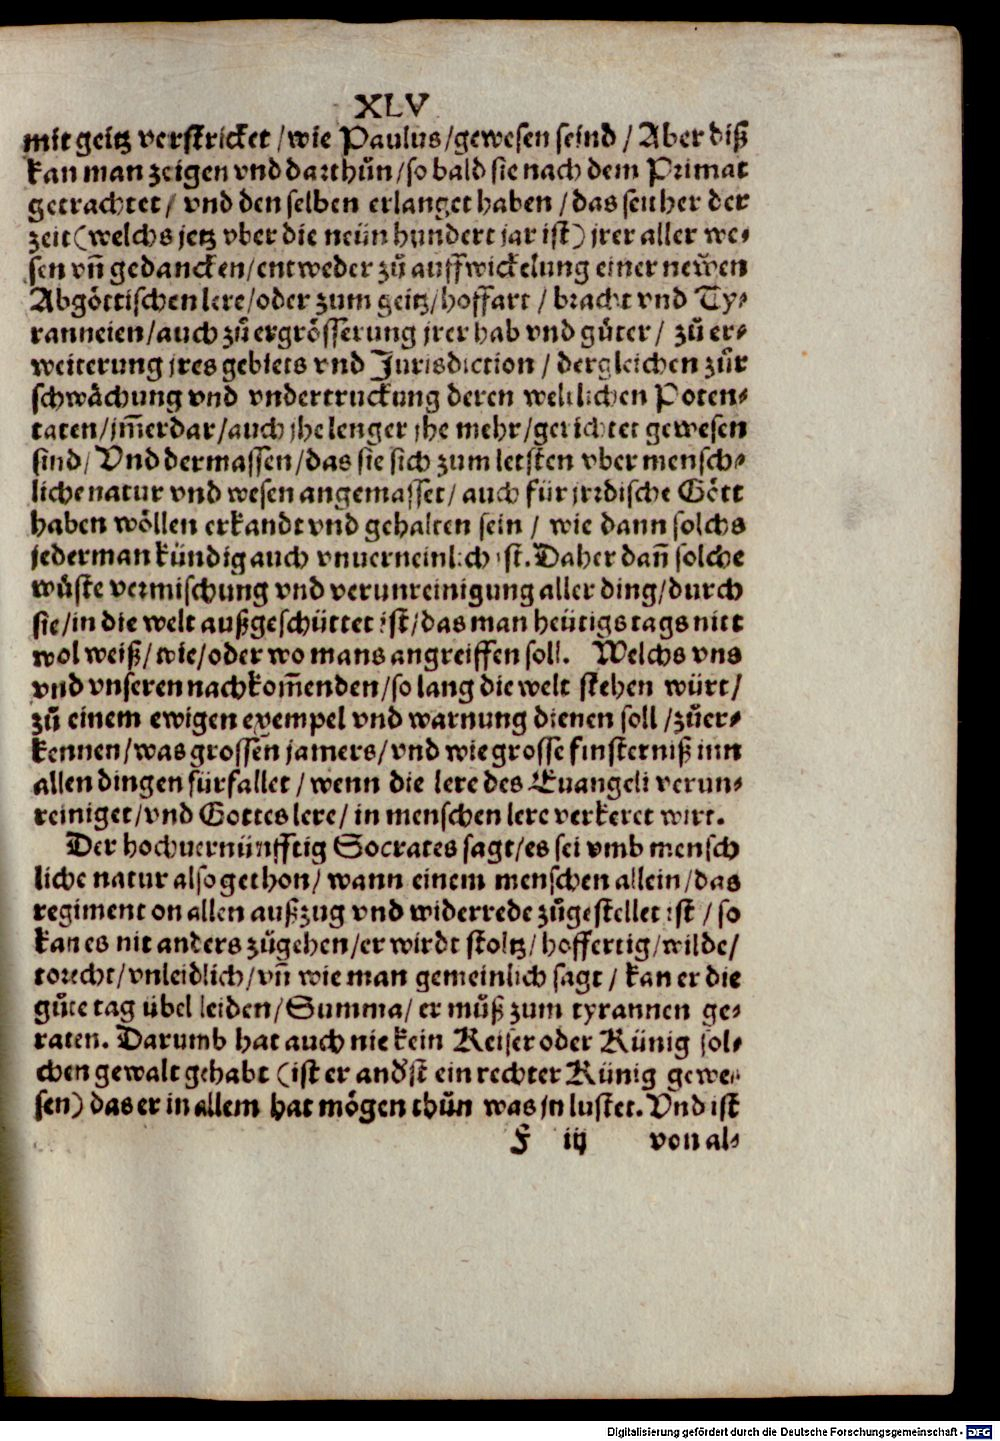 XLV
mit geitz verstricket / wie Paulus / gewesen seind / Aber diß
kan man zeigen vnd darthůn / so bald sie nach dem Primat
getrachtet / vnd den selben erlanget haben / das seither der
zeit (welchs jetz vber die neün hundert jar ist) jrer aller we⸗
sen vñ gedancken / entweder zů auffwickelung einer newen
Abgöttischen lere / oder zum geitz / hoffart / bracht vnd Ty⸗
ranneien / auch zů ergrösserung jrer hab vnd gůter / zů er⸗
weiterung jres gebiets vnd Jurisdiction / dergleichen zůr
schwächung vnd vndertruckung deren weltlichen Poten⸗
taten / jm̃erdar / auch jhe lenger jhe mehr / gerichtet gewesen
sind / Vnd dermassen / das sie sich zum letsten vber mensch⸗
liche natur vnd wesen angemasset / auch für jrrdische Gött
haben wöllen erkandt vnd gehalten sein / wie dann solchs
jederman kündig auch vnuerneinlich ist. Daher dañ solche
wůste vermischung vnd verunreinigung aller ding / durch
sie / in die welt außgeschüttet ist / das man heütigs tags nitt
wol weiß / wie / oder wo mans angreiffen soll. Welchs vns
vnd vnseren nachkom̃enden / so lang die welt stehen würt /
zů einem ewigen exempel vnd warnung dienen soll / zůer⸗
kennen / was grossen jamers / vnd wie grosse finsterniß inn
allen dingen fürfallet / wenn die lere des Euangeli verun⸗
reiniget / vnd Gottes lere / in menschen lere verkeret wirt.
Der hochuernünfftig Socrates sagt / es sei vmb mensch
liche natur also gethon / wann einem menschen allein / das
regiment on allen außzug vnd widerrede zůgestellet ist / so
kan es nit anders zůgehen / er wirdt stoltz / hoffertig / wilde /
torecht / vnleidlich / vñ wie man gemeinlich sagt / kan er die
gůte tag übel leiden / Summa / er můß zum tyrannen ge⸗
raten. Darumb hat auch nie kein Keiser oder Künig sol⸗
chen gewalt gehabt (ist er anderst ein rechter Künig gewe⸗
sen) das er in allem hat mögen thůn was jn lustet. Vnd ist
F iij von al⸗
Digitalisierung gefördert durch die Deutsche Forschungsgemeinschaft - DFG